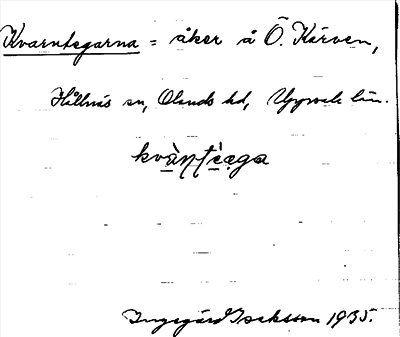 Kvarntegarna = åker å Ö. Kärven,
Hållnäs sn, Olands hd, Uppsala län.
Ingegärd Isaksson 1935.